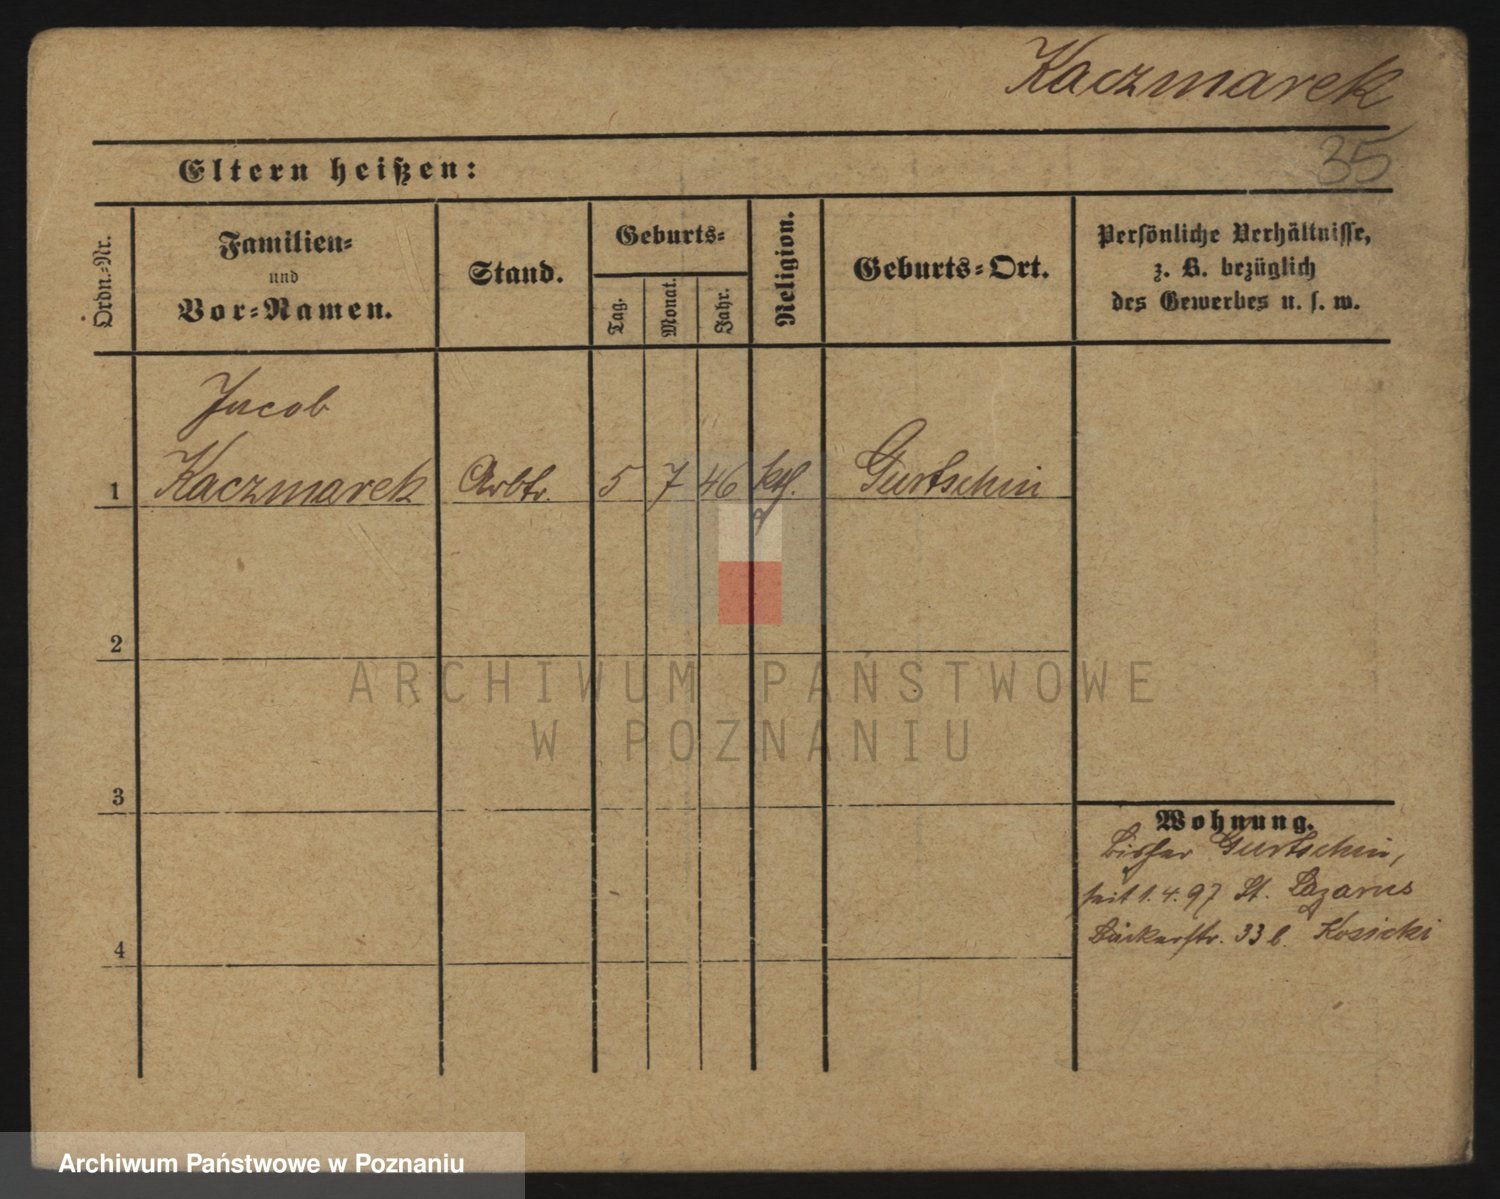 Kaczmarek
35
Eltern heißen:
Ordn.-Nr.
Familien-
und
Vor-Namen.
Stand.
Geburts-
Tag.
Monat.
Jahr.
Religion.
Geburts-Ort.
Persönliche Verhältnisse,
z. B. bezüglich
des Gewerbes u. s. w.
Jacob
1 Kaczmarek Arbtr. 5 7 46 ktl. Gurtschin
2
ARCHIWUM PAŃSTWOWE
W POZNANIU
3
Wohnung.
bisher Gurtschin,
seit 1. 4. 97 St. Lazarus
Bäckerstr. 33 b. Kosicki
4
Archiwum Państwowe w Poznaniu